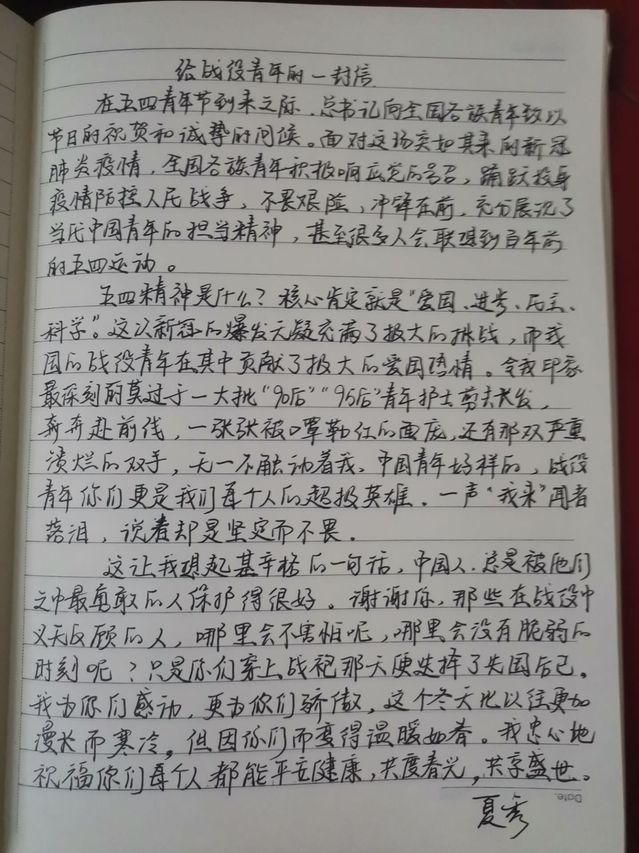 给战役青年的一封信
在五四青年节到来之际，总书记向全国各族青年致以
节日的祝贺和诚挚的问候。面对这场突如其来的新冠
肺炎疫情，全国各族青年积极响应党的号召，踊跃投身
疫情防控人民战争，不畏艰险，冲锋在前，充分展现了
当代中国青年的担当精神，甚至很多人会联想到百年前
的五四运动。
五四精神是什么？核心肯定就是“爱国、进步、民主、
科学”。这次新冠的爆发无疑充满了极大的挑战，而我
国的战役青年在其中贡献了极大的爱国热情。令我印象
最深刻的莫过于一大批“90后”“95后”青年护士剪去长发，
奔奔赴前线，一张张被口罩勒红的面庞，还有那双严重
溃烂的双手，无一不触动着我，中国青年好样的，战役
青年你们更是我们每个人的超级英雄。一声“我来”闻者
落泪，说者却是坚定而不畏。
这让我想起基辛格的一句话，中国人总是被他们
之中最勇敢的人保护得很好。谢谢你，那些在战役中
义无反顾的人，哪里会不害怕呢，哪里会没有脆弱的
时刻呢？只是你们穿上战袍那天便选择了先国后己。
我为你们感动，更为你们骄傲，这个冬天比以往更加
漫长而寒冷。但因你们而变得温暖如春。我忠心地
祝福你们每个人都能平安健康，共度春光，共享盛世。
Date.
夏秀